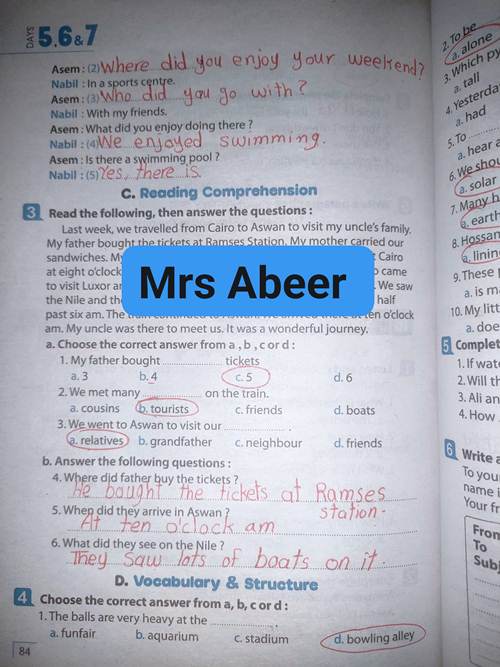 DAYS 5,6&7
Asem : (2) Where did you enjoy your weekend?
Nabil : In a sports centre.
Asem : (3) Who did you go with?
Nabil : With my friends.
Asem : What did you enjoy doing there ?
Nabil : (4) We enjoyed swimming.
Asem : Is there a swimming pool ?
Nabil : (5) Yes, there is.
C. Reading Comprehension
3 Read the following, then answer the questions :
Last week, we travelled from Cairo to Aswan to visit my uncle's family.
My father bought the tickets at Ramses Station. My mother carried our
sandwiches. My Cairo
at eight o'clock came
to visit Luxor We saw
the Nile and half
past six am. The ten o'clock
am. My uncle was there to meet us. It was a wonderful journey.
Mrs Abeer
a. Choose the correct answer from a , b , c or d :
1. My father bought tickets
a. 3 b. 4 c. 5 d. 6
2. We met many on the train.
a. cousins b. tourists c. friends d. boats
3. We went to Aswan to visit our .
a. relatives b. grandfather c. neighbour d. friends
b. Answer the following questions :
4. Where did father buy the tickets ?
He bought the tickets at Ramses
station.
5. When did they arrive in Aswan ?
At ten o'clock am
6. What did they see on the Nile ?
They saw lots of boats on it.
D. Vocabulary & Structure
4 Choose the correct answer from a, b, c or d :
1. The balls are very heavy at the .
a. funfair b. aquarium c. stadium d. bowling alley
84
2. To be
a. alone
3. Which
a. tall
4. Yesterda
a. had
5. To
a. hear
6. We shou
a. solar
7. Many
a. earth
8. Hossam
a. lining
9. These
a. is
10. My litt
a. doe
5 Complet
1. If wate
2. Will th
3. Ali an
4. How
6 Write a
To you
name
Your fr
From
To
Subj